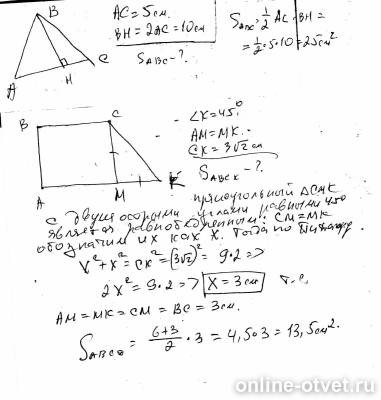 B
A
H
C
AC = 5 см.
BH = 2AC = 10 см
S_ABC - ?
S_ABC = 1/2 AC · BH =
= 1/2 · 5 · 10 = 25 см²
B
C
A
M
K
∠K = 45°
AM = MK.
CK = 3√2 см
S_ABCK - ?
прямоугольный ΔCMK
с двумя острыми углами равными 45°
является равнобедренным. CM = MK
обозначим их как X. Тогда по
X² + X² = CK² = (3√2)² = 9·2 =>
2X² = 9·2 => X = 3 см т.е.
AM = MK = CM = BC = 3 см.
S = (6+3)/2 · 3 = 4,5·3 = 13,5 см².
online-otvet.ru